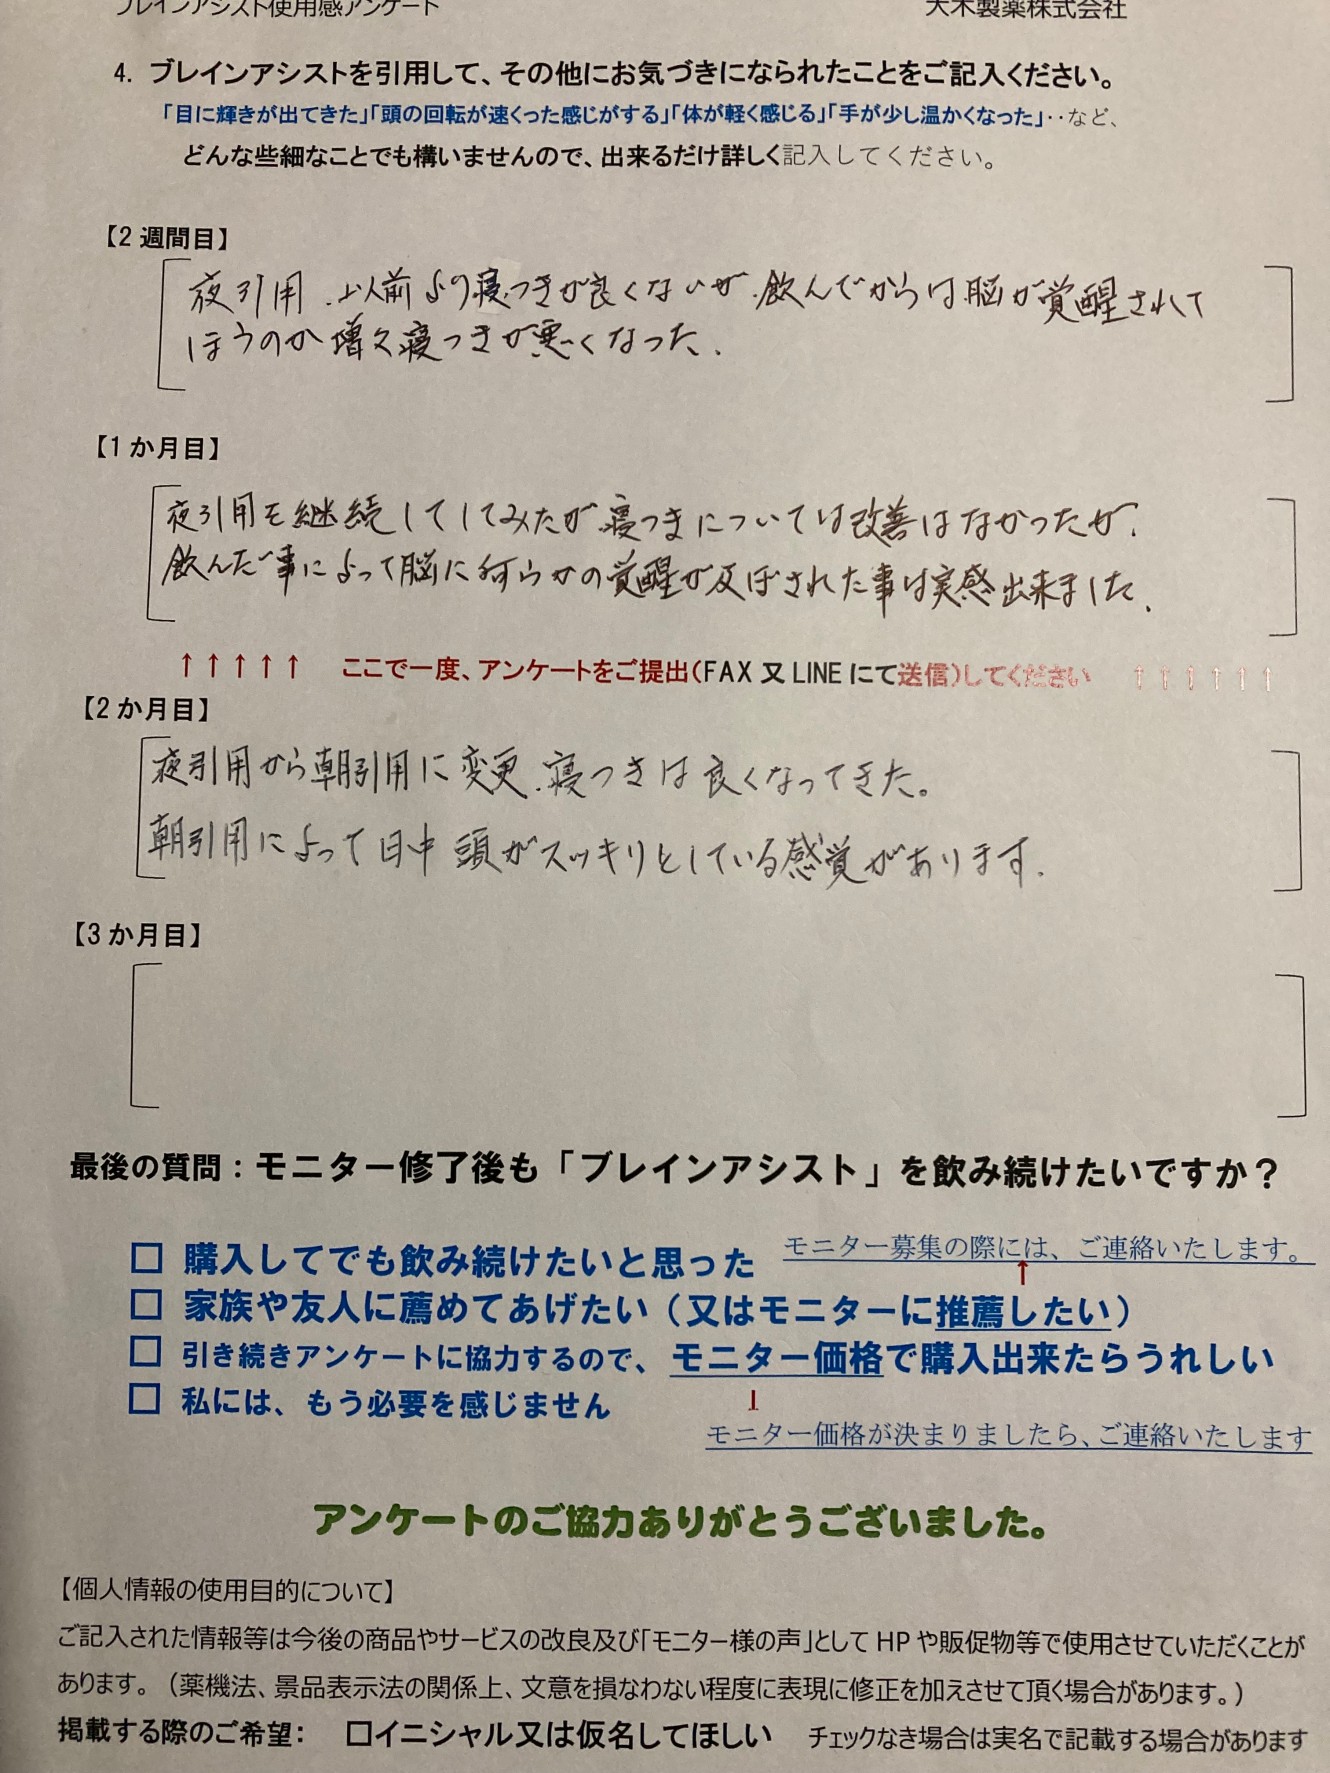 ブレインアシスト使用感アンケート 大木製薬株式会社
4. ブレインアシストを引用して、その他にお気づきになられたことをご記入ください。
「目に輝きが出てきた」「頭の回転が速くった感じがする」「体が軽く感じる」「手が少し温かくなった」‥など、
どんな些細なことでも構いませんので、出来るだけ詳しく記入してください。
【2 週間目】
夜引用、以前より寝つきが良くないが、飲んでからは脳が覚醒されて
ほうのか増々寝つきが悪くなった.
【1 か月目】
夜引用を継続してしてみたが寝つきについては改善はなかったが、
飲んだ事によって脳に何らかの覚醒が及ぼされた事は実感出来ました.
↑↑↑↑↑ ここで一度、アンケートをご提出(FAX 又 LINE にて送信)してください ↑↑↑↑↑↑
【2 か月目】
夜引用から朝引用に変更、寝つきは良くなってきた。
朝引用によって日中 頭がスッキリとしている感覚があります.
【3 か月目】
最後の質問：モニター修了後も「ブレインアシスト」を飲み続けたいですか？
□ 購入してでも飲み続けたいと思った モニター募集の際には、ご連絡いたします。
↑
□ 家族や友人に薦めてあげたい（又はモニターに推薦したい）
□ 引き続きアンケートに協力するので、モニター価格で購入出来たらうれしい
□ 私には、もう必要を感じません
モニター価格が決まりましたら、ご連絡いたします
アンケートのご協力ありがとうございました。
【個人情報の使用目的について】
ご記入された情報等は今後の商品やサービスの改良及び「モニター様の声」として HP や販促物等で使用させていただくことが
あります。（薬機法、景品表示法の関係上、文意を損なわない程度に表現に修正を加えさせて頂く場合があります。）
掲載する際のご希望： □イニシャル又は仮名してほしい チェックなき場合は実名で記載する場合があります